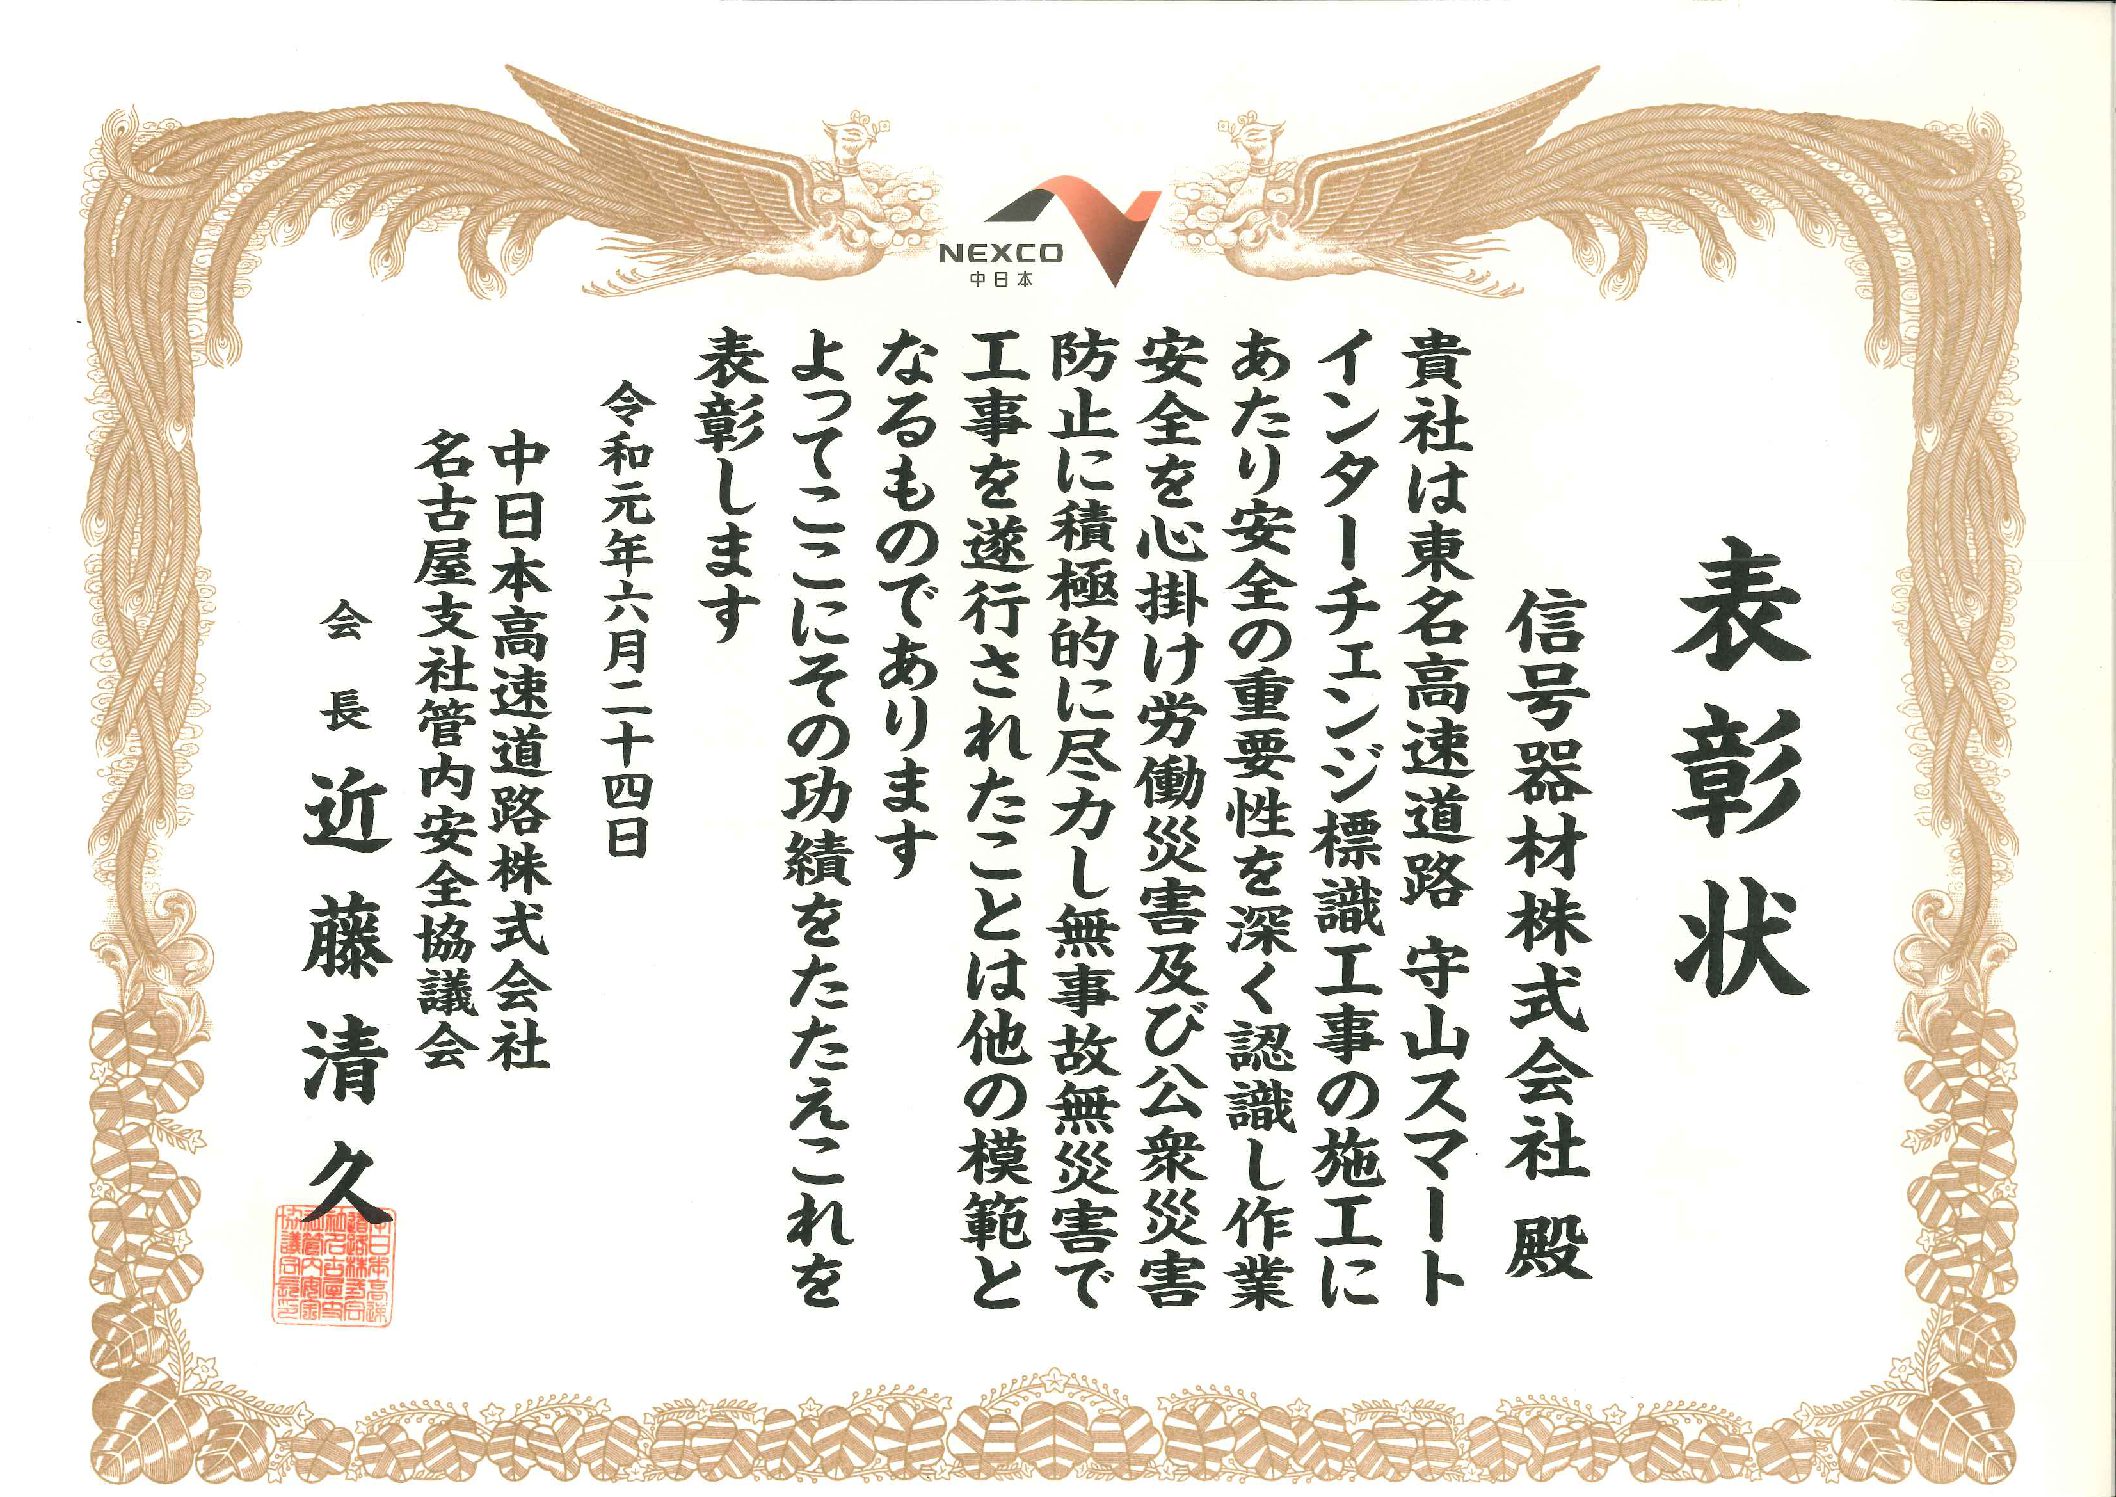 NEXCO
中日本
表彰状
信号器材株式会社 殿
貴社は東名高速道路 守山スマート
インターチェンジ標識工事の施工に
あたり安全の重要性を深く認識し作業
安全を心掛け労働災害及び公衆災害
防止に積極的に尽力し無事故無災害で
工事を遂行されたことは他の模範と
なるものであります
よってここにその功績をたたえこれを
表彰します
令和元年六月二十四日
中日本高速道路株式会社
名古屋支社管内安全協議会
会長 近藤清久